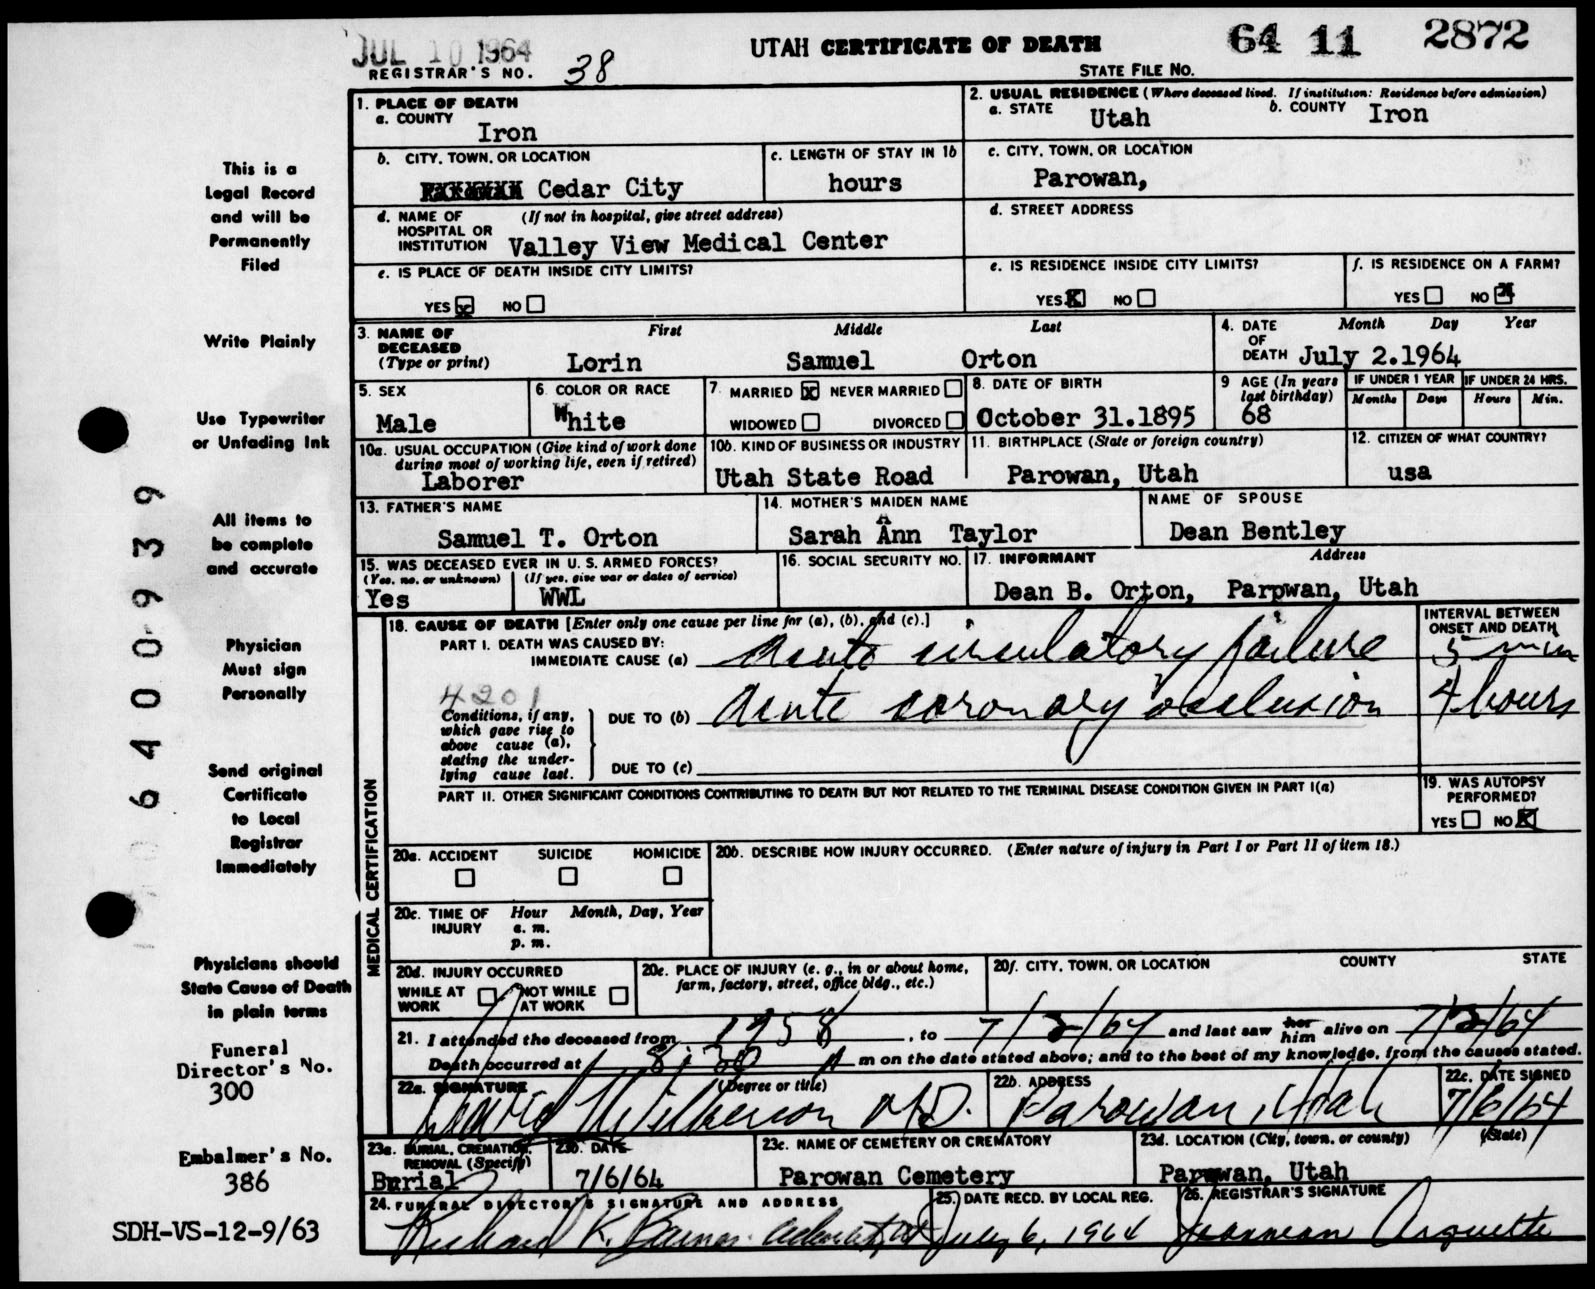 JUL 10 1964
UTAH CERTIFICATE OF DEATH
64 11 2872
REGISTRAR'S NO. 38
STATE FILE NO.
1. PLACE OF DEATH
a. COUNTY
Iron
2. USUAL RESIDENCE (Where deceased lived. If institution: Residence before admission)
a. STATE Utah b. COUNTY Iron
b. CITY, TOWN, OR LOCATION
Cedar City
c. LENGTH OF STAY IN 1b
hours
c. CITY, TOWN, OR LOCATION
Parowan,
d. NAME OF HOSPITAL OR INSTITUTION (If not in hospital, give street address)
Valley View Medical Center
d. STREET ADDRESS
e. IS PLACE OF DEATH INSIDE CITY LIMITS?
YES x NO
e. IS RESIDENCE INSIDE CITY LIMITS?
YES X NO
f. IS RESIDENCE ON A FARM?
YES NO X
3. NAME OF DECEASED (Type or print)
First Middle Last
Lorin Samuel Orton
4. DATE OF DEATH Month Day Year
July 2.1964
5. SEX
Male
6. COLOR OR RACE
White
7. MARRIED X NEVER MARRIED
WIDOWED DIVORCED
8. DATE OF BIRTH
October 31.1895
9 AGE (In years last birthday)
68
IF UNDER 1 YEAR
Months Days
IF UNDER 24 HRS.
Hours Min.
10a. USUAL OCCUPATION (Give kind of work done during most of working life, even if retired)
Laborer
10b. KIND OF BUSINESS OR INDUSTRY
Utah State Road
11. BIRTHPLACE (State or foreign country)
Parowan, Utah
12. CITIZEN OF WHAT COUNTRY?
usa
13. FATHER'S NAME
Samuel T. Orton
14. MOTHER'S MAIDEN NAME
Sarah Ann Taylor
NAME OF SPOUSE
Dean Bentley
15. WAS DECEASED EVER IN U. S. ARMED FORCES?
(Yes, no, or unknown) (If yes, give war or dates of service)
Yes WWL
16. SOCIAL SECURITY NO.
17. INFORMANT Address
Dean B. Orton, Parpwan, Utah
MEDICAL CERTIFICATION
18. CAUSE OF DEATH [Enter only one cause per line for (a), (b), and (c).]
INTERVAL BETWEEN ONSET AND DEATH
PART I. DEATH WAS CAUSED BY:
IMMEDIATE CAUSE (a) Acute circulatory failure 5 min
4201
Conditions, if any, which gave rise to above cause (a), stating the underlying cause last.
DUE TO (b) Acute coronary occlusion 4 hours
DUE TO (c)
PART II. OTHER SIGNIFICANT CONDITIONS CONTRIBUTING TO DEATH BUT NOT RELATED TO THE TERMINAL DISEASE CONDITION GIVEN IN PART I(a)
19. WAS AUTOPSY PERFORMED?
YES NO X
20a. ACCIDENT SUICIDE HOMICIDE
20b. DESCRIBE HOW INJURY OCCURRED. (Enter nature of injury in Part I or Part II of item 18.)
20c. TIME OF INJURY Hour Month, Day, Year
a. m.
p. m.
20d. INJURY OCCURRED
WHILE AT WORK NOT WHILE AT WORK
20e. PLACE OF INJURY (e. g., in or about home, farm, factory, street, office bldg., etc.)
20f. CITY, TOWN, OR LOCATION COUNTY STATE
21. I attended the deceased from 1958, to 7/2/64 and last saw her him alive on 7/2/64
Death occurred at 8:30 A m on the date stated above; and to the best of my knowledge, from the causes stated.
22a. SIGNATURE (Degree or title)
M.D.
22b. ADDRESS
Parowan, Utah
22c. DATE SIGNED
7/6/64
23a. BURIAL, CREMATION, REMOVAL (Specify)
Burial
23b. DATE
7/6/64
23c. NAME OF CEMETERY OR CREMATORY
Parowan Cemetery
23d. LOCATION (City, town, or county) (State)
Parowan, Utah
24. FUNERAL DIRECTOR'S SIGNATURE AND ADDRESS
Richard K.
25. DATE RECD. BY LOCAL REG.
July 6, 1964
26. REGISTRAR'S SIGNATURE
Arquette
This is a
Legal Record
and will be
Permanently
Filed
Write Plainly
Use Typewriter
or Unfading Ink
All items to
be complete
and accurate
Physician
Must sign
Personally
Send original
Certificate
to Local
Registrar
Immediately
Physicians should
State Cause of Death
in plain terms
Funeral
Director's No.
300
Embalmer's No.
386
SDH-VS-12-9/63
6400939